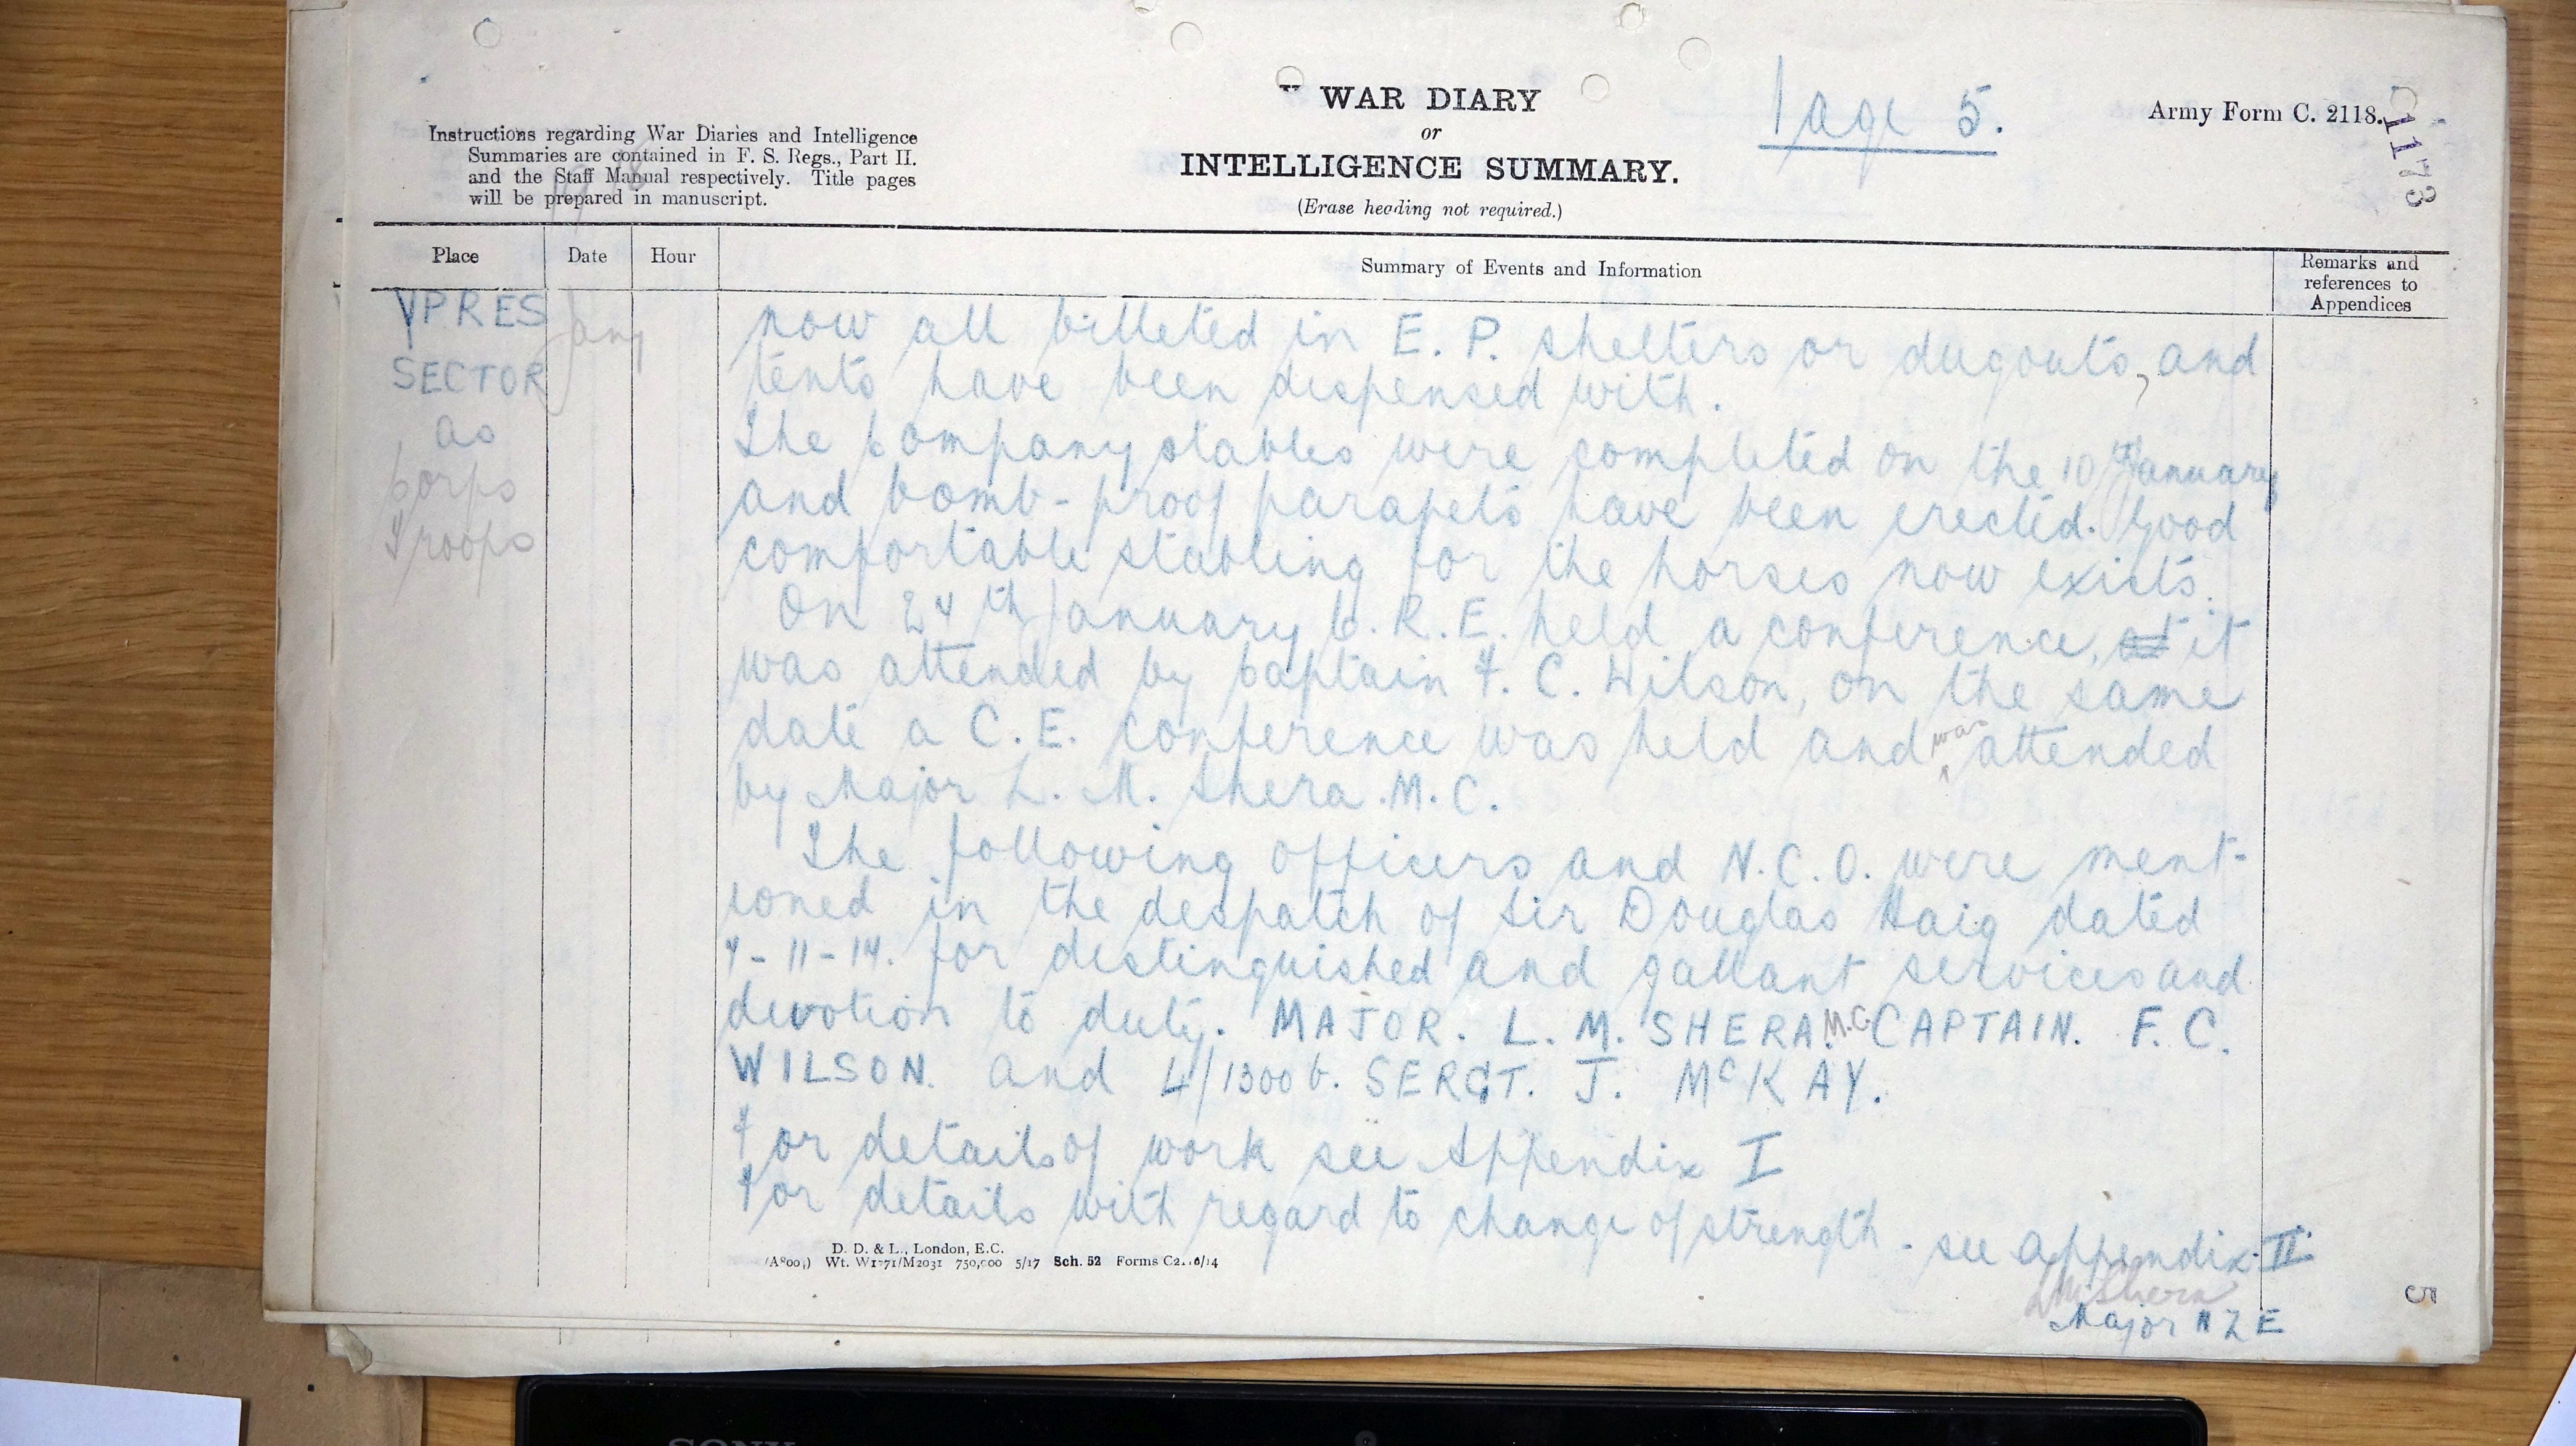 WAR DIARY
or
INTELLIGENCE SUMMARY.
(Erase heading not required.)
Page 5.
Army Form C. 2118.
1173
Instructions regarding War Diaries and Intelligence
Summaries are contained in F. S. Regs., Part II.
and the Staff Manual respectively. Title pages
will be prepared in manuscript.
Place
Date
Hour
Summary of Events and Information
Remarks and
references to
Appendices
YPRES
SECTOR
as
Corps
Troops
Jany
now all billeted in E. P. shelters or dugouts, and
tents have been dispensed with.
The Company stables were completed on the 10th January
and bomb-proof parapets have been erected. Good
comfortable stabling for the horses now exists.
On 24th January C.R.E. held a conference, at it
was attended by Captain F. C. Wilson, on the same
date a C.E. conference was held and was attended
by Major L. M. Shera. M.C.
The following officers and N.C.O. were ment-
ioned in the despatch of Sir Douglas Haig dated
7-11-17. for distinguished and gallant services and
devotion to duty. MAJOR. L. M. SHERA. M.C. CAPTAIN. F. C.
WILSON. and 4/1300 b. SERGT. J. McKAY.
For details of work see Appendix I
For details with regard to change of strength - see appendix II
LMShera
Major N Z E
D. D. & L., London, E.C.
Wt. W1771/M2031 750,000 5/17 Sch. 52 Forms
5
SONY